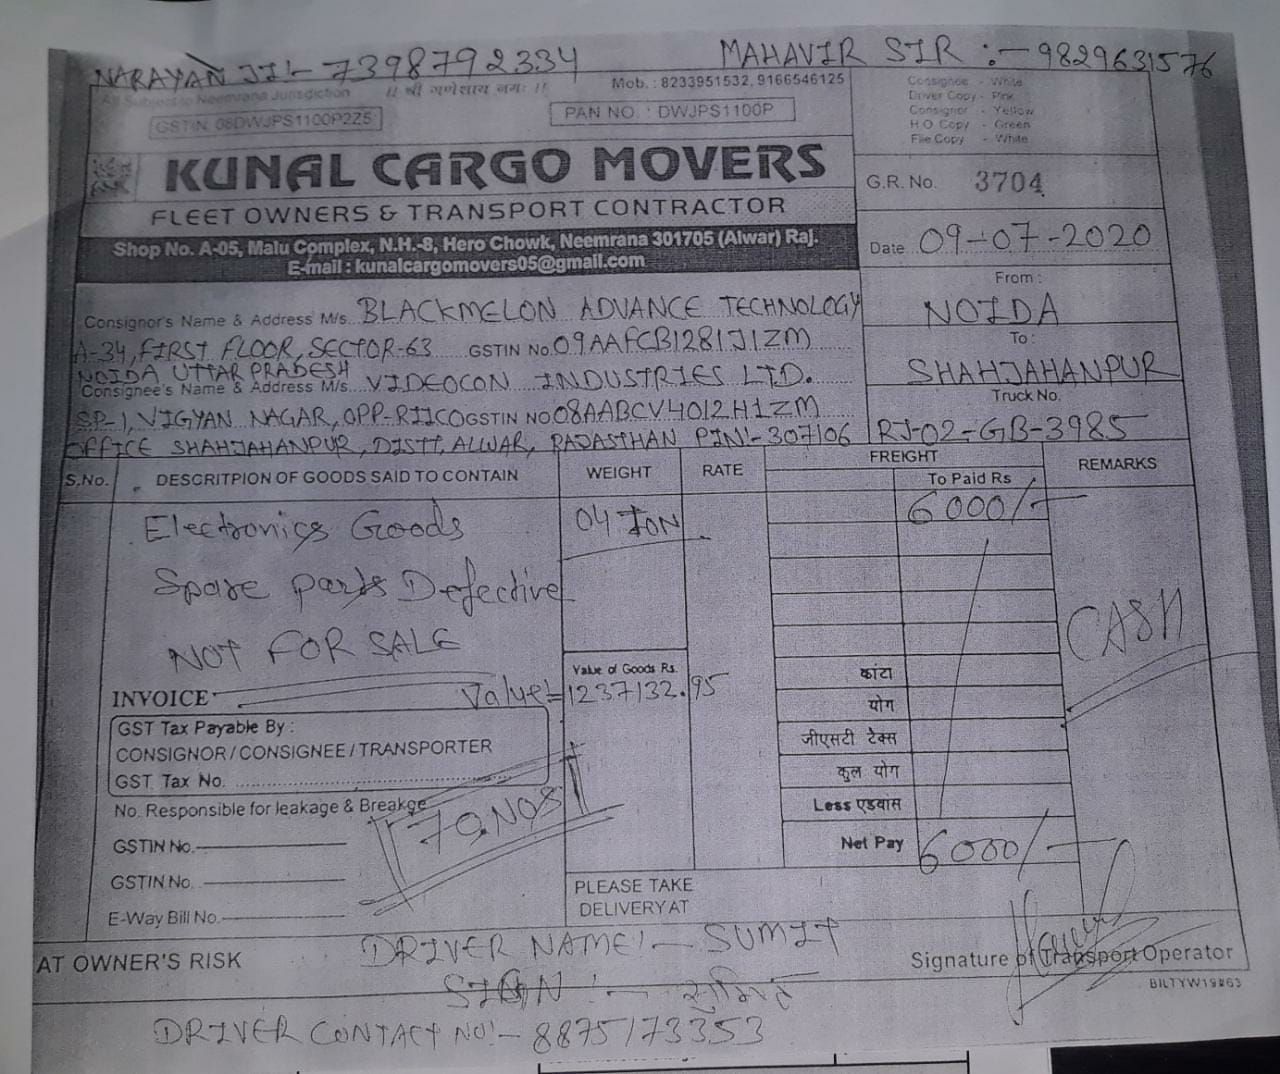 NARAYAN JI:- 7398792334
MAHAVIR SIR :- 9829631576
All Subject to Neemrana Jurisdiction
॥ श्री गणेशाय नमः ॥
Mob. : 8233951532, 9166546125
GSTIN 08DWJPS1100P2Z5
PAN NO. : DWJPS1100P
Consignee - White
Driver Copy - Pink
Consignor - Yellow
H.O Copy - Green
File Copy - White
KUNAL CARGO MOVERS
FLEET OWNERS & TRANSPORT CONTRACTOR
Shop No. A-05, Malu Complex, N.H.-8, Hero Chowk, Neemrana 301705 (Alwar) Raj.
E-mail : kunalcargomovers05@gmail.com
G.R. No. 3704
Date 09-07-2020
From :
NOIDA
To :
SHAHJAHANPUR
Truck No.
RJ-02-GB-3985
Consignor's Name & Address M/s. BLACKMELON ADVANCE TECHNOLOGY
A-34, FIRST FLOOR, SECTOR-63 GSTIN No. 09AAFCB1281J1ZM
NOIDA UTTAR PRADESH
Consignee's Name & Address M/s. VIDEOCON INDUSTRIES LTD.
SP-1, VIGYAN NAGAR, OPP-RIICO GSTIN NO 08AABCV4012H1ZM
OFFICE SHAHJAHANPUR, DISTT, ALWAR, RAJASTHAN PIN:- 307106
S.No. DESCRITPION OF GOODS SAID TO CONTAIN WEIGHT RATE FREIGHT REMARKS
To Paid Rs
Electronics Goods 04 TON 6000/-
Spare parts Defective
NOT FOR SALE
CASH
Value of Goods Rs.
INVOICE Value:- 1237132.95
कांटा
योग
जीएसटी टैक्स
कुल योग
Less एडवांस
Net Pay 6000/-
GST Tax Payable By :
CONSIGNOR / CONSIGNEE / TRANSPORTER
GST Tax No.
No. Responsible for leakage & Breakge
79 NOS
GSTIN No.
GSTIN No.
E-Way Bill No.
PLEASE TAKE
DELIVERY AT
AT OWNER'S RISK
DRIVER NAME:- SUMIT
SIGN :- सुमित
Signature of Transport Operator
BILTYW19#63
DRIVER CONTACT NO:- 8875173353